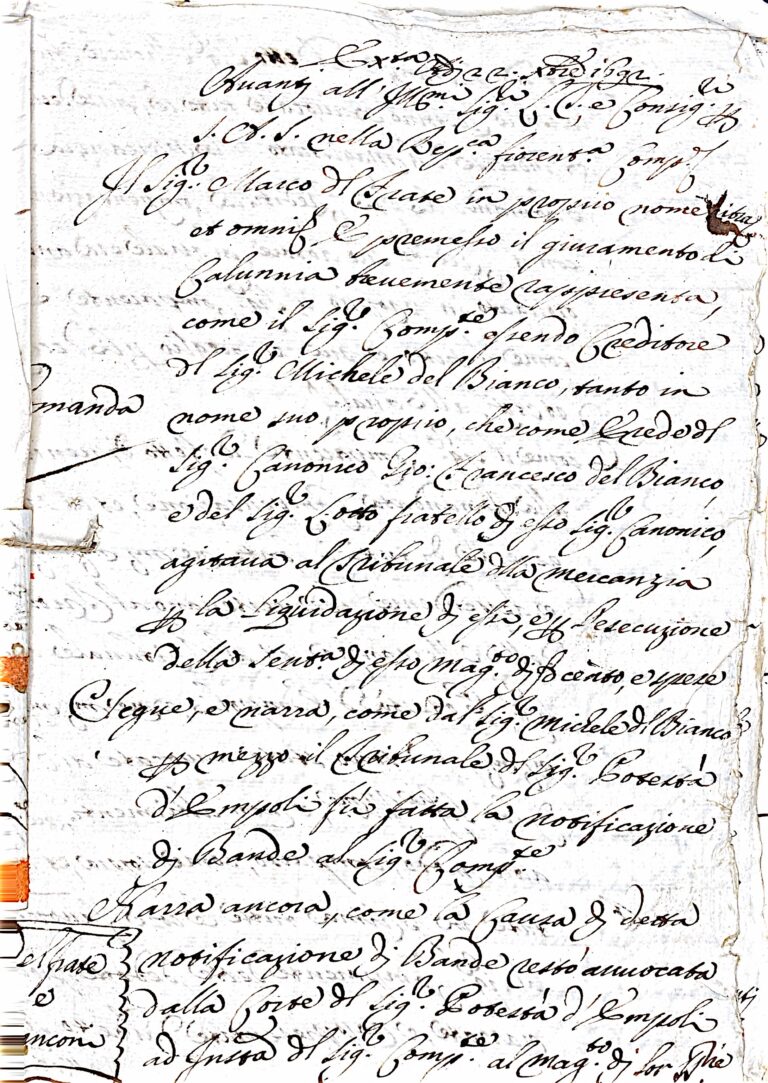 Exta
Adj 22. Xbre 1692.
Avantj all' Illmi Sigri S. S.e e Consigri p
S. A. S. nella Repca fiorenta Comp
Il Sigr. Marco del Frate in proprio nome libra
et omni, e premesso il giuramento di
Calunnia brevemente rappresenta,
come il Sigr. Compte essendo Creditore
del Sigr. Michele del Bianco, tanto in
manda
nome suo proprio, che come Erede del
Sigr. Canonico Gio: Francesco del Bianco,
e del Sigr. Lotto fratello dj esso Sigr. Canonico,
agitava al Tribunale della mercanzia
p la Liquidazione dj essi, e p l'esecuzione
della Senta dj esso Magto dj , e spese
Segue, e narra, come dal Sigr. Michele del Bianco
p mezzo il Tribunale del Sigr. Potestà
d'Empoli fù fatta la notificazione
dj Bande al Sigr. Compte
Narra ancora, come la Causa dj detta
notificazione dj Bande restò avvocata
dalla Corte del Sigr. Potestà d'Empoli
ad Insta del Sigr. Compte al Magto dj Sri
del frate
e
anconi